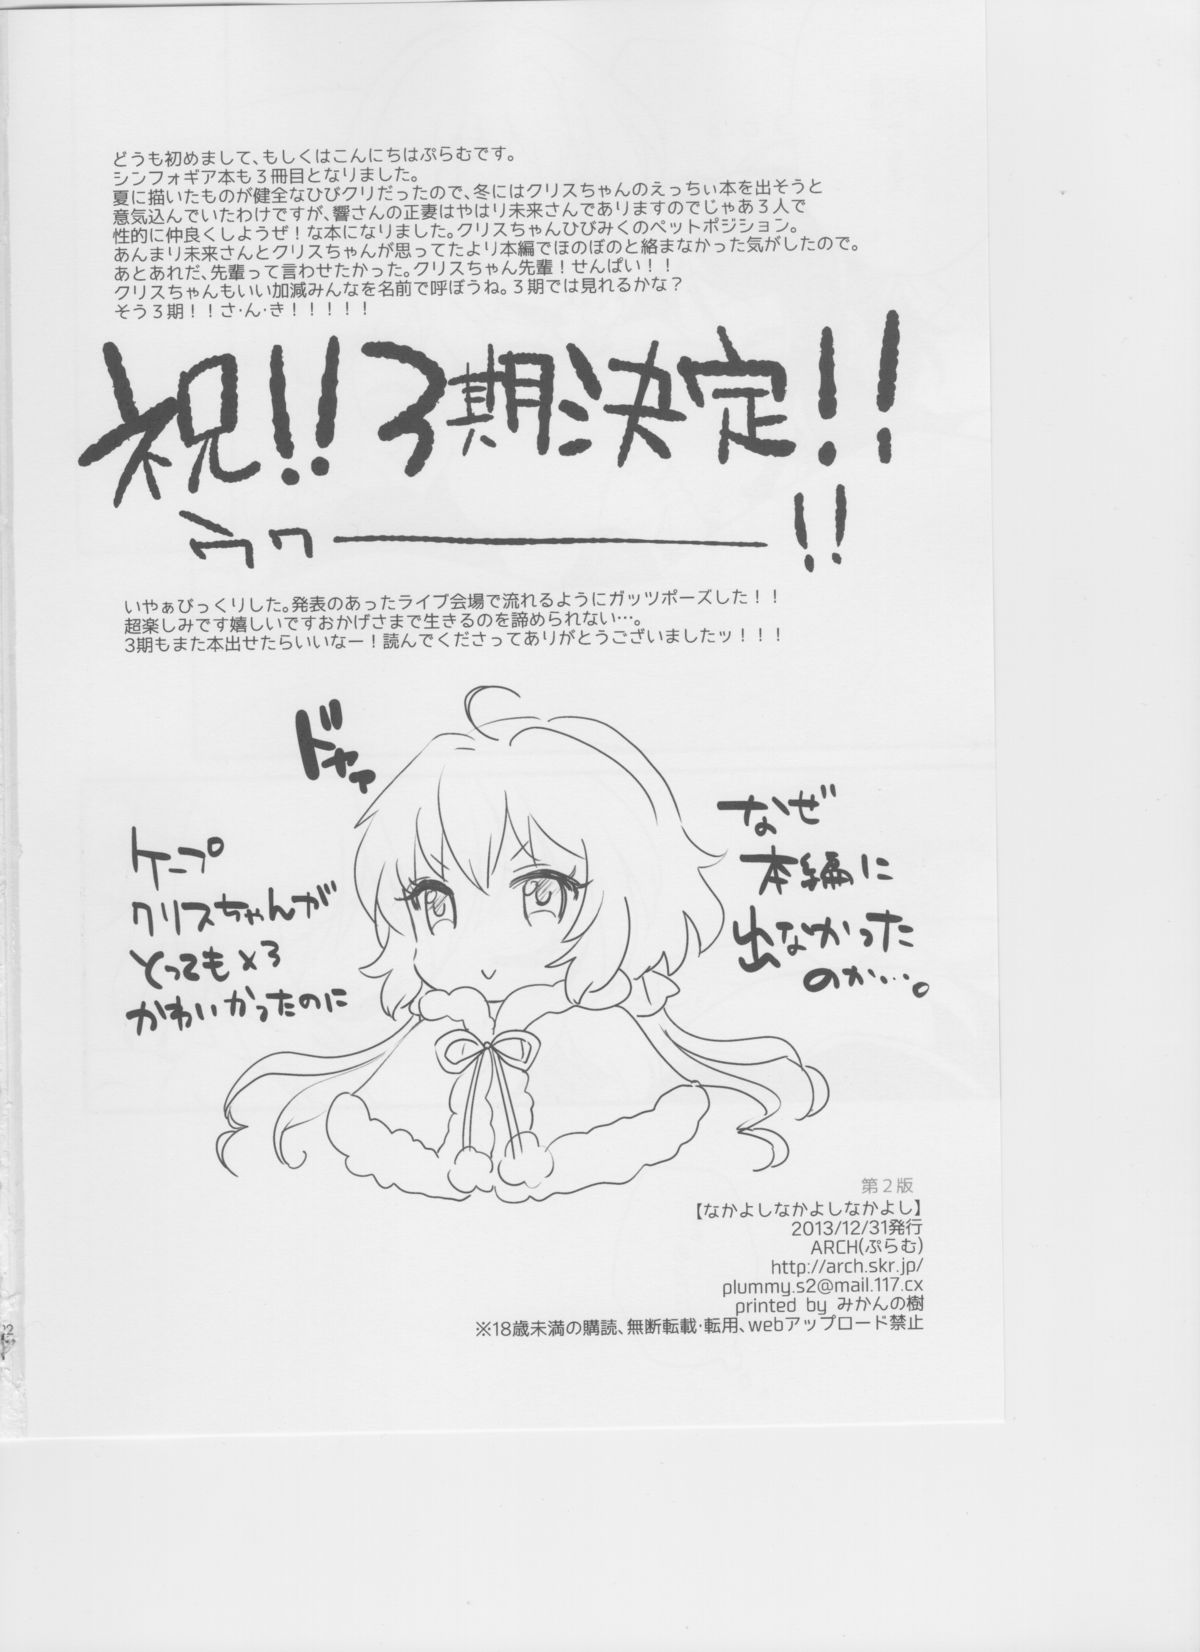 どうも初めまして、もしくはこんにちはぷらむです。
シンフォギア本も３冊目となりました。
夏に描いたものが健全なひびクリだったので、冬にはクリスちゃんのえっちぃ本を出そうと
意気込んでいたわけですが、響さんの正妻はやはり未来さんでありますのでじゃあ３人で
性的に仲良くしようぜ！な本になりました。クリスちゃんひびみくのペットポジション。
あんまり未来さんとクリスちゃんが思ってたより本編でほのぼのと絡まなかった気がしたので。
あとあれだ、先輩って言わせたかった。クリスちゃん先輩！せんぱい！！
クリスちゃんもいい加減みんなを名前で呼ぼうね。３期では見れるかな？
そう３期！！さ・ん・き！！！！！
祝!!３期決定!!
ウワ――――!!
いやぁびっくりした。発表のあったライブ会場で流れるようにガッツポーズした！！
超楽しみです嬉しいですおかげさまで生きるのを諦められない…。
3期もまた本出せたらいいなー！読んでくださってありがとうございましたッ！！！
ドヤァ
ケープ
クリスちゃんが
とっても×3
かわいかったのに
なぜ
本編に
出なかった
のか…。
第２版
【なかよしなかよしなかよし】
2013/12/31発行
ARCH(ぷらむ)
http://arch.skr.jp/
plummy.s2@mail.117.cx
printed by みかんの樹
※18歳未満の購読、無断転載・転用、webアップロード禁止